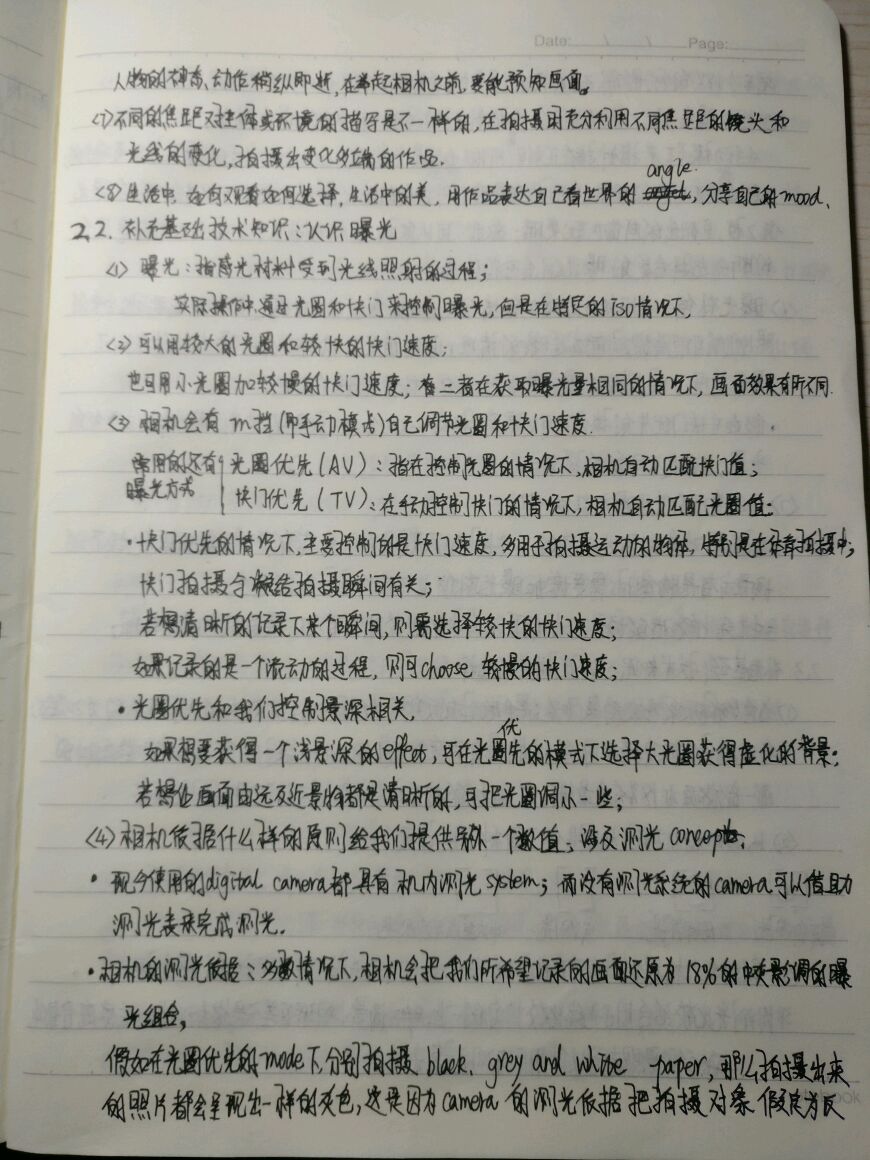 Date: / / Page:
人物的神态、动作稍纵即逝,在举起相机之前,要能预知画面。
<7>不同的焦距对主体或环境的描写是不一样的,在拍摄时充分利用不同焦距的镜头和
光线的变化,拍摄出变化多端的作品.
angle.
<8>生活中,如何观看如何选择,生活中的美,用作品表达自己看世界的,分享自己的mood、
2,2. 补充基础技术知识:认识曝光
<1> 曝光:指感光材料受到光线照射的过程;
实际操作中,通过光圈和快门来控制曝光,但是在特定的iso情况下,
<2> 可以用较大的光圈和较快的快门速度;
也可用小光圈加较慢的快门速度;在获取曝光量相同的情况下,画面效果有所不同.
<3> 相机会有m挡(即手动模式)自己调节光圈和快门速度.
常用的还有 光圈优先(AV):指在控制光圈的情况下,相机自动匹配快门值;
曝光方式 快门优先(TV):在手动控制快门的情况下,相机自动匹配光圈值;
·快门优先的情况下,主要控制的是快门速度,多用于拍摄运动的物体,特别是在体育拍摄中;
快门拍摄与凝结拍摄瞬间有关;
若想清晰的记录下来个瞬间,则需选择较快的快门速度;
如果记录的是一个流动的过程,则可choose 较慢的快门速度;
·光圈优先和我们控制景深相关,
优
如果想要获得一个浅景深的effect,可在光圈先的模式下选择大光圈获得虚化的背景;
若想让画面由远及近景物都是清晰的,可把光圈调小一些;
<4>相机依据什么样的原则给我们提供另外一个数值,涉及测光concept.
·现今使用的digital camera都具有机内测光system;而没有测光系统的camera可以借助
测光表来完成测光.
·相机的测光依据:多数情况下,相机会把我们所希望记录的画面还原为18%的中灰影调的曝
光组合,
假如在光圈优先的mode下分别拍摄 black、grey and white paper,那么拍摄出来
的照片都会呈现出一样的灰色,这是因为camera的测光依据把拍摄对象假定为反